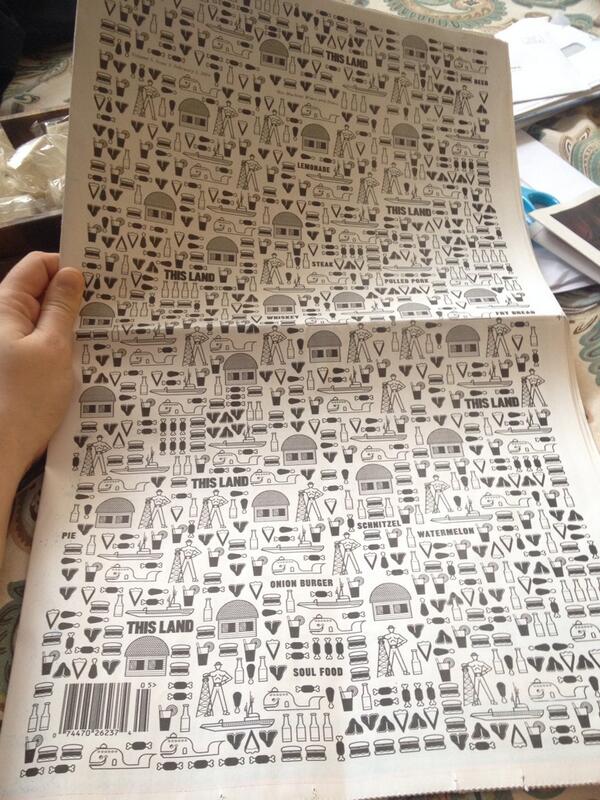 THIS LAND
LEMONADE
THIS LAND
THIS LAND
STEAK
PULLED PORK
WHISKEY
FRY BREAD
THIS LAND
THIS LAND
SCHNITZEL
PIE
WATERMELON
ONION BURGER
THIS LAND
SOUL FOOD
05>
0 74470 26237 4